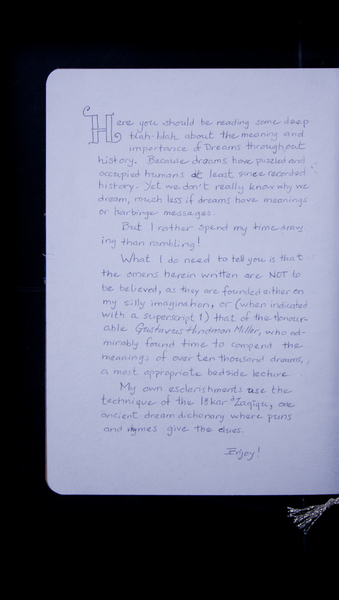 Here you should be reading some deep
blah-blah about the meaning and
importance of Dreams throughout
history. Because dreams have puzzled and
occupied humans at least since recorded
history. Yet we don't really know why we
dream, much less if dreams have meanings
or harbinger messages.
But I rather spend my time draw
ing than rambling!
What I do need to tell you is that
the omens herein written are NOT to
be believed, as they are founded either on
my silly imagination, or (when indicated
with a superscript 1) that of the Honour-
able Gustavus Hindman Miller, who ad-
mirably found time to compend the
meanings of over ten thousand dreams,
a most appropriate bedside lecture.
My own esclarishments use the
technique of the Iškar Zaqīqu, one
ancient dream dictionary where puns
and rhymes give the clues.
Enjoy!